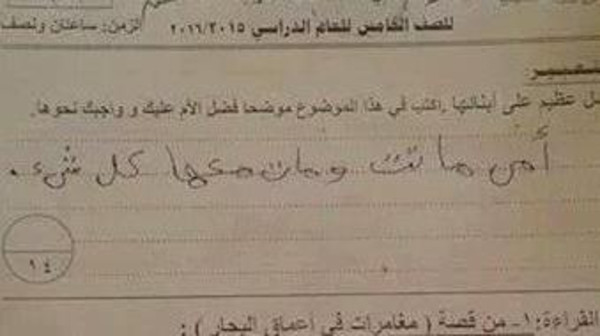 للصف الخامس للعام الدراسي ٢٠١٦/٢٠١٥ الزمن: ساعتان ونصف
عظيم على أبنائها .اكتب في هذا الموضوع موضحا فضل الأم عليك و واجبك نحوها.
أمي ماتت ومات معها كل شيء .
١٤
القراءة:١- من قصة ( مغامرات في أعماق البحار ) :